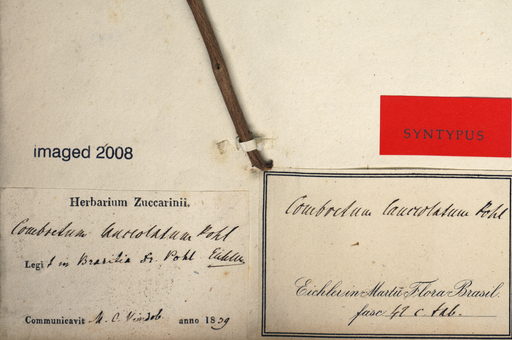 SYNTYPUS
imaged 2008
Herbarium Zuccarinii.
Combretum lanceolatum Pohl
Legit in Brasilia Dr. Pohl Eichler
Communicavit M. C. Vindob. anno 1839
Combretum lanceolatum Pohl
Eichler in Martii Flora Brasil.
fasc 42 c. tab.